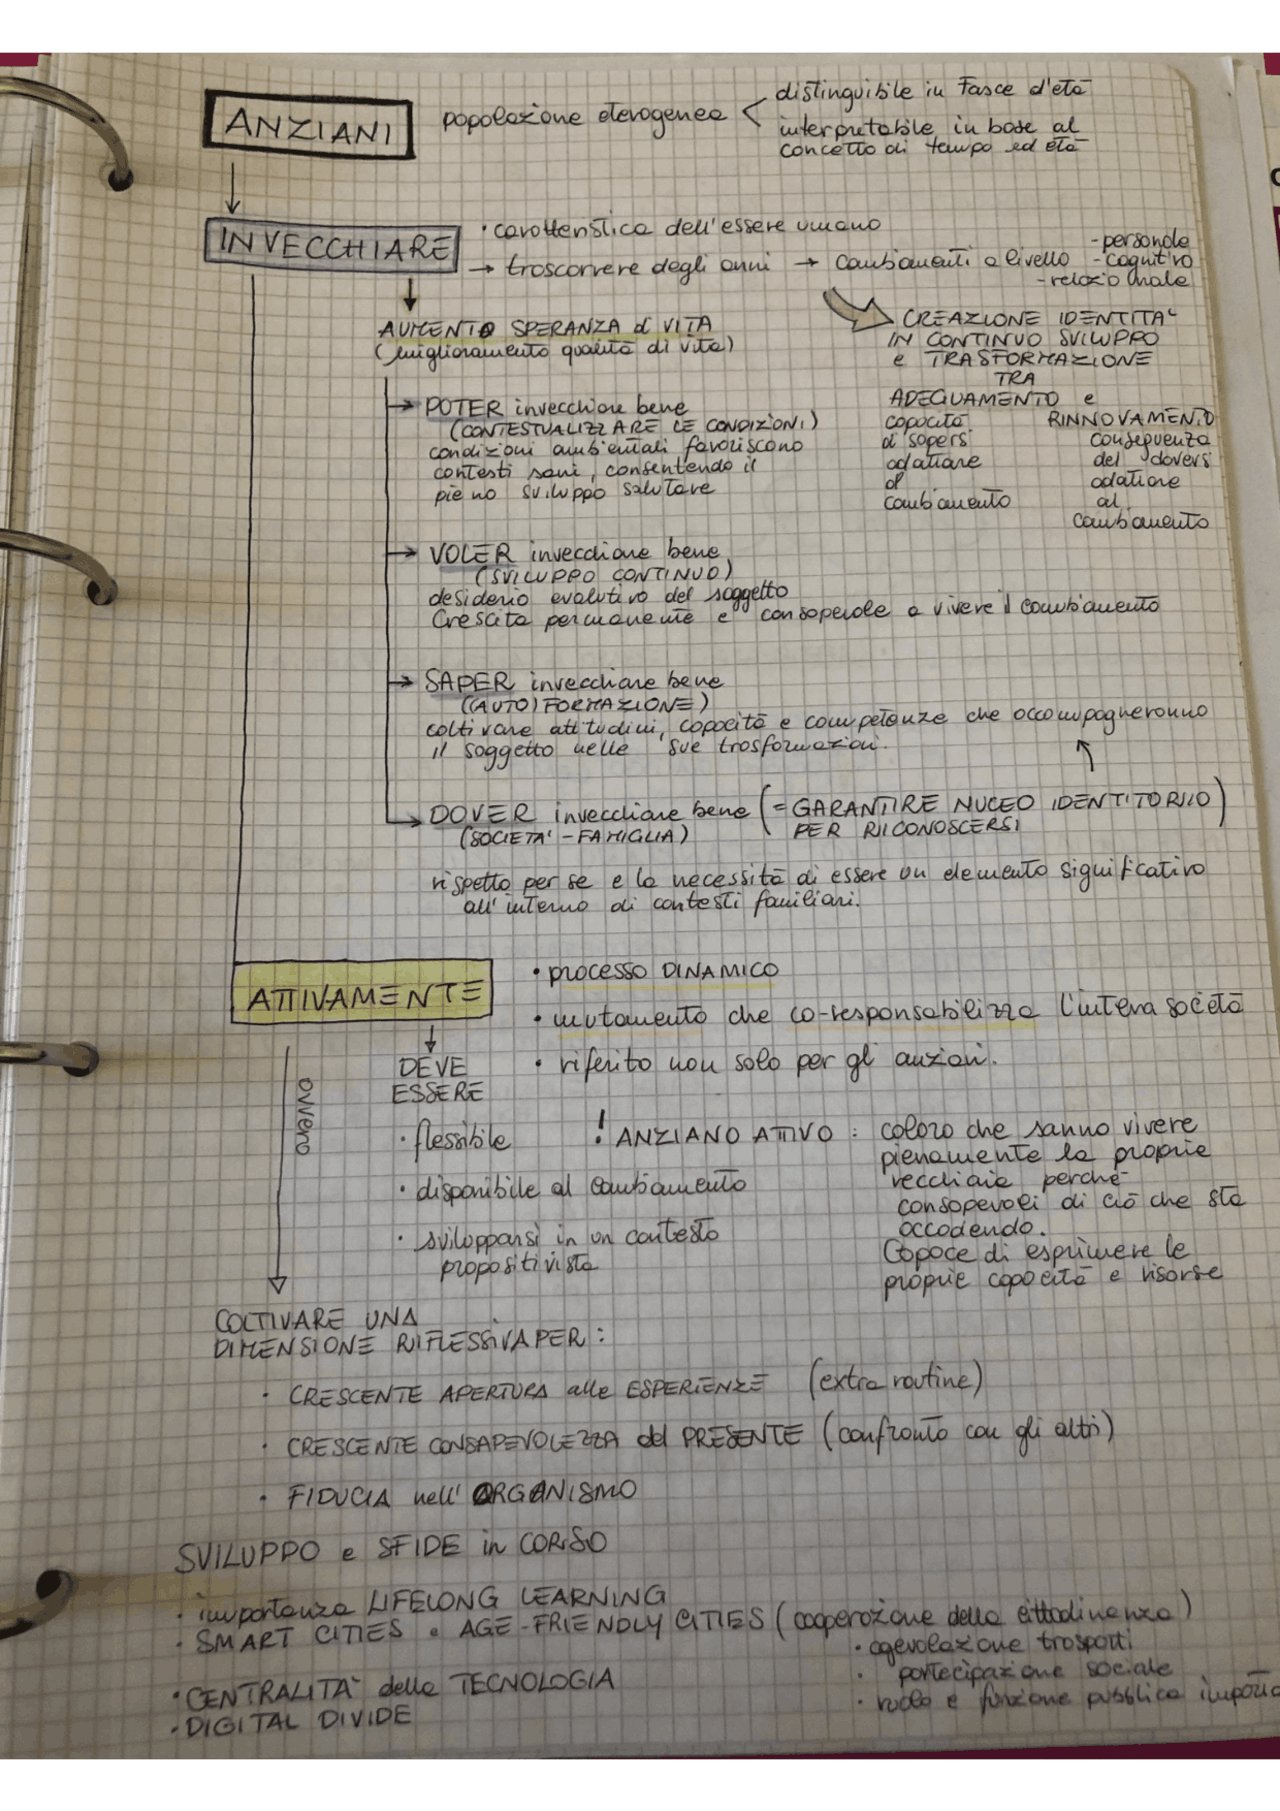 ANZIANI
popolazione eterogenea
distinguibile in fasce d'età
interpretabile in base al
concetto di tempo ed età
INVECCHIARE
• caratteristica dell'essere umano
→ trascorrere degli anni → cambiamenti a livello
- personale
- cognitivo
- relazionale
AUMENTO SPERANZA di VITA
(miglioramento qualità di vita)
CREAZIONE IDENTITA'
IN CONTINUO SVILUPPO
e TRASFORMAZIONE
TRA
ADEGUAMENTO e
RINNOVAMENTO
capacità
di sapersi
adattare
al
cambiamento
conseguenza
del doversi
adattare
al
cambiamento
→ POTER invecchiare bene
(CONTESTUALIZZARE LE CONDIZIONI)
condizioni ambientali favoriscono
contesti sani, consentendo il
pieno sviluppo salutare
→ VOLER invecchiare bene
(SVILUPPO CONTINUO)
desiderio evolutivo del soggetto
Crescita permanente e consapevole a vivere il cambiamento
→ SAPER invecchiare bene
((AUTO)FORMAZIONE)
coltivare attitudini, capacità e competenze che accompagneranno
il soggetto nelle sue trasformazioni.
→ DOVER invecchiare bene (= GARANTIRE NUCEO IDENTITORIIO)
(SOCIETA' - FAMIGLIA) PER RIICONOSCERSI
rispetto per se e la necessità di essere un elemento significativo
all'interno di contesti familiari.
ATTIVAMENTE
• processo DINAMICO
• mutamento che co-responsabilizza l'intera società
• riferito non solo per gli anziani.
ovvero
DEVE
ESSERE
• flessibile
• disponibile al cambiamento
• svilupparsi in un contesto
propositivista
! ANZIANO ATTIVO : coloro che sanno vivere
pienamente la proprie
vecchiaia perché
consapevoli di ciò che sta
accadendo.
Capace di esprimere le
proprie capacità e risorse
COLTIVARE UNA
DIMENSIONE RIFLESSIVA PER :
• CRESCENTE APERTURA alle ESPERIENZE (extra routine)
• CRESCENTE CONSAPEVOLEZZA del PRESENTE (confronto con gli altri)
• FIDUCIA nell' ORGANISMO
SVILUPPO e SFIDE in CORSO
• importanza LIFELONG LEARNING
• SMART CITIES e AGE-FRIENDLY CITIES (cooperazione della cittadinanza)
• agevolazione trasporti
• partecipazione sociale
• ruolo e funzione pubblica
• CENTRALITA' della TECNOLOGIA
• DIGITAL DIVIDE